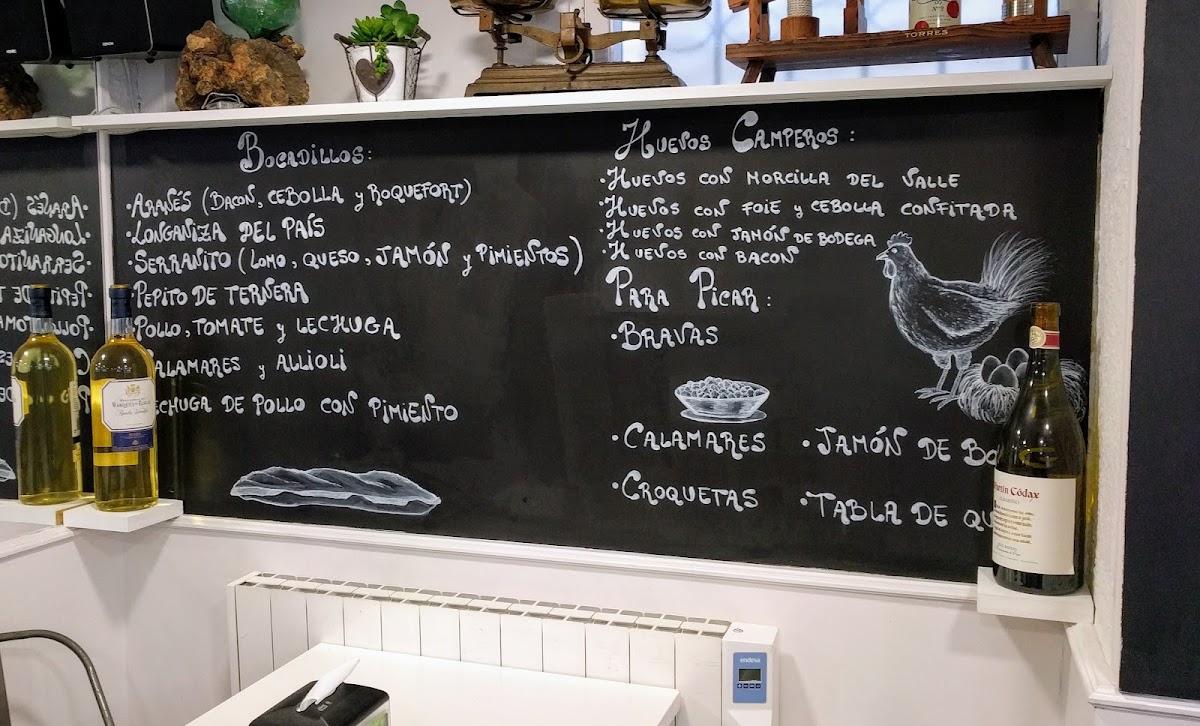 TORRES
BOCADILLOS:
·ARANÉS (BACON, CEBOLLA y ROQUEFORT)
·LONGANIZA DEL PAÍS
·SERRANITO (LOMO, QUESO, JAMÓN y PIMIENTOS)
·PEPITO DE TERNERA
·POLLO, TOMATE y LECHUGA
ALAMARES y ALLIOLI
ECHUGA DE POLLO CON PIMIENTO
HUEVOS CAMPEROS:
·HUEVOS CON MORCILLA DEL VALLE
·HUEVOS CON FOIE y CEBOLLA CONFITADA
·HUEVOS CON JAMÓN DE BODEGA
·HUEVOS CON BACON
PARA PICAR:
·BRAVAS
·CALAMARES
·JAMÓN DE BO
·CROQUETAS
·TABLA DE QU
Martín Códax
endesa